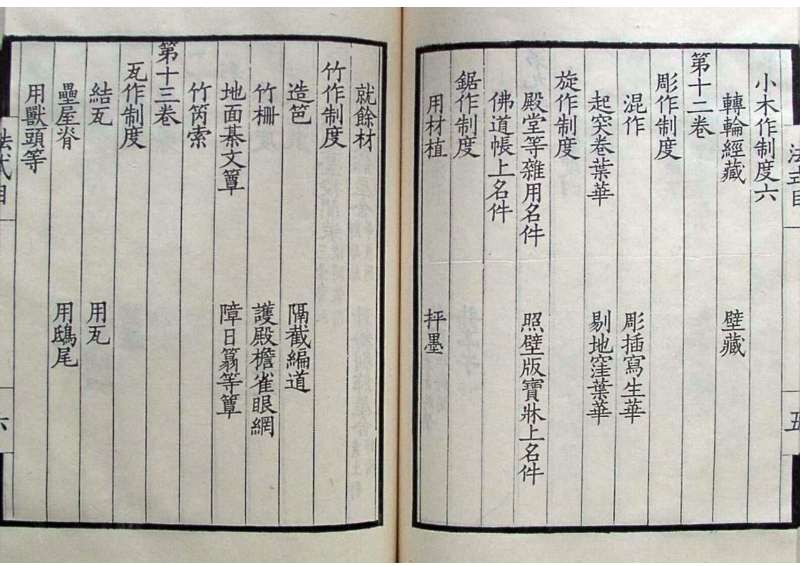 法式目
五
小木作制度六
轉輪經藏　壁藏
第十二卷
彫作制度
混作　彫插寫生華
起突卷葉華　剔地窪葉華
旋作制度
殿堂等雜用名件　照壁版寶牀上名件
佛道帳上名件
鋸作制度
用材植　抨墨
就餘材
竹作制度
造笆　隔截編道
竹柵　護殿檐雀眼網
地面棊文簟　障日篛等簟
竹笍索
第十三卷
瓦作制度
結瓦　用瓦
壘屋脊　用鴟尾
用獸頭等
法式目
六